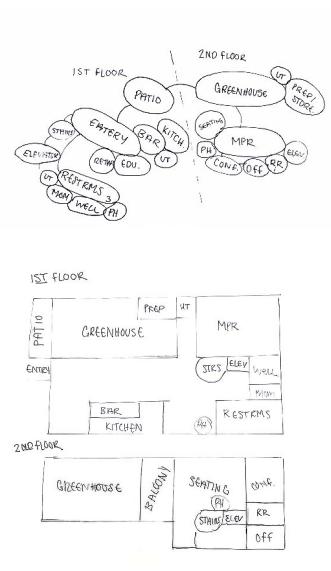 2ND FLOOR
1ST FLOOR
UT
PREP/
STORE
GREENHOUSE
PATIO
SEATING
EATERY
BAR
KITCH
STAIRS
MPR
PH
ELEV
ELEVATOR
RETAIL
EDU.
UT
CONF.
OFF
RR
UT
RESTRMS
3
MOM
WELL
PH
1ST FLOOR
PATIO
PREP
UT
GREENHOUSE
MPR
ENTRY
STRS
ELEV
WELL
MOM
BAR
RESTRMS
KITCHEN
PH
2ND FLOOR
GREENHOUSE
BALCONY
SEATING
CONF.
PH
STAIRS
ELEV
RR
OFF